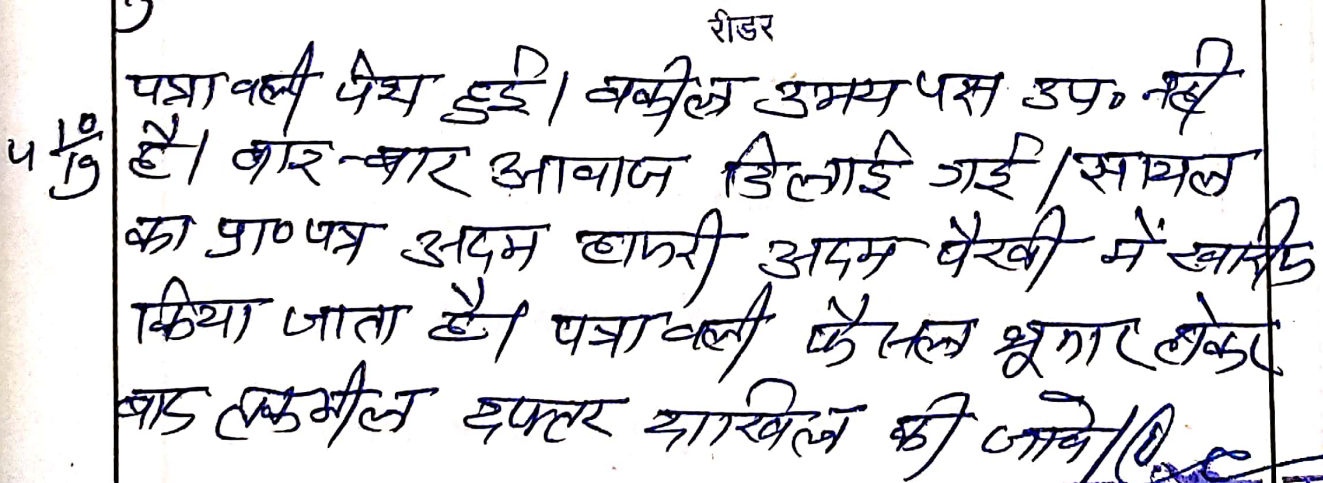 रीडर
पत्रावली पेश हुई। वकील उभय पक्ष उप० नही
है। बार-बार आवाज दिलाई गई। सायल
का प्रा०पत्र अदम हाजरी अदम पैरवी में खारीज
किया जाता है। पत्रावली फैसल शूमार होकर
बाद तकमील दफ्तर दाखिल की जावे।